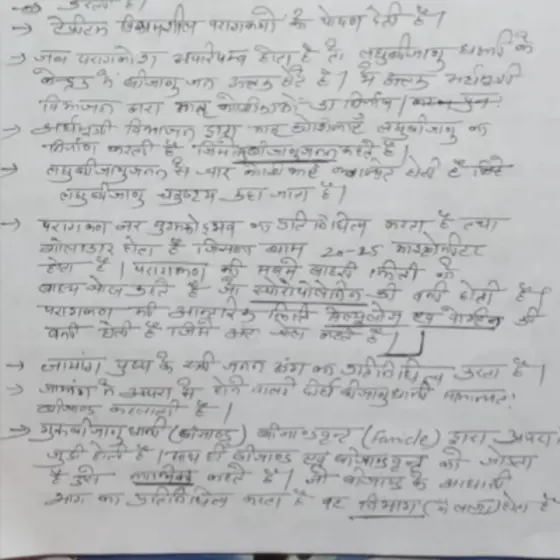 करता है।
→ टेपीटम विकासशील परागकणों को पोषण देती है।
→ जब परागकोश अपरिपक्व होता है तो लघुबीजाणु धानी के
केन्द्र में बीजाणु जन ऊतक होते हैं। ये ऊतक अर्धसूत्री
विभाजन द्वारा मातृ कोशिकाओं का निर्माण।
→ अर्धसूत्री विभाजन द्वारा मातृ कोशिकाएँ लघुबीजाणु का
निर्माण करती है जिसे लघुबीजाणुजनन कहते हैं।
→ लघुबीजाणुजनन से चार कोशिकाएँ व्यवस्थित होती है जिसे
लघुबीजाणु चतुष्टय कहा जाता है।
→ परागकण नर युग्मकोद्भव का प्रतिनिधित्व करता है तथा
गोलाकार होता है जिसका व्यास 20-25 माइक्रोमीटर
होता है। परागकण की सबसे बाहरी भित्ती को
बाह्य चोल कहते है जो स्पोरोपोलेनिन की बनी होती है।
परागकण की आन्तरिक भित्ति सेल्युलोस एवं पेक्टिन की
बनी होती है जिसे अंतः चोल कहते है।
→ जायांग पुष्प के स्त्री जनन अंग का प्रतिनिधित्व करता है।
→ जायांग के अण्डाशय में होने वाली दीर्घ बीजाणुधानी सामान्यतः
बीजाण्ड कहलाती है।
→ गुरुबीजाणुधानी (बीजाण्ड) बीजाण्डवृन्त (Funicle) द्वारा अपरा
जुड़ी होती है। साथ ही बीजाण्ड एवं बीजाण्डवृन्त को जोड़ता
है इसे नाभिका कहते है। जो बीजाण्ड के आधारी
भाग का प्रतिनिधित्व करता है वह निभाग होता है